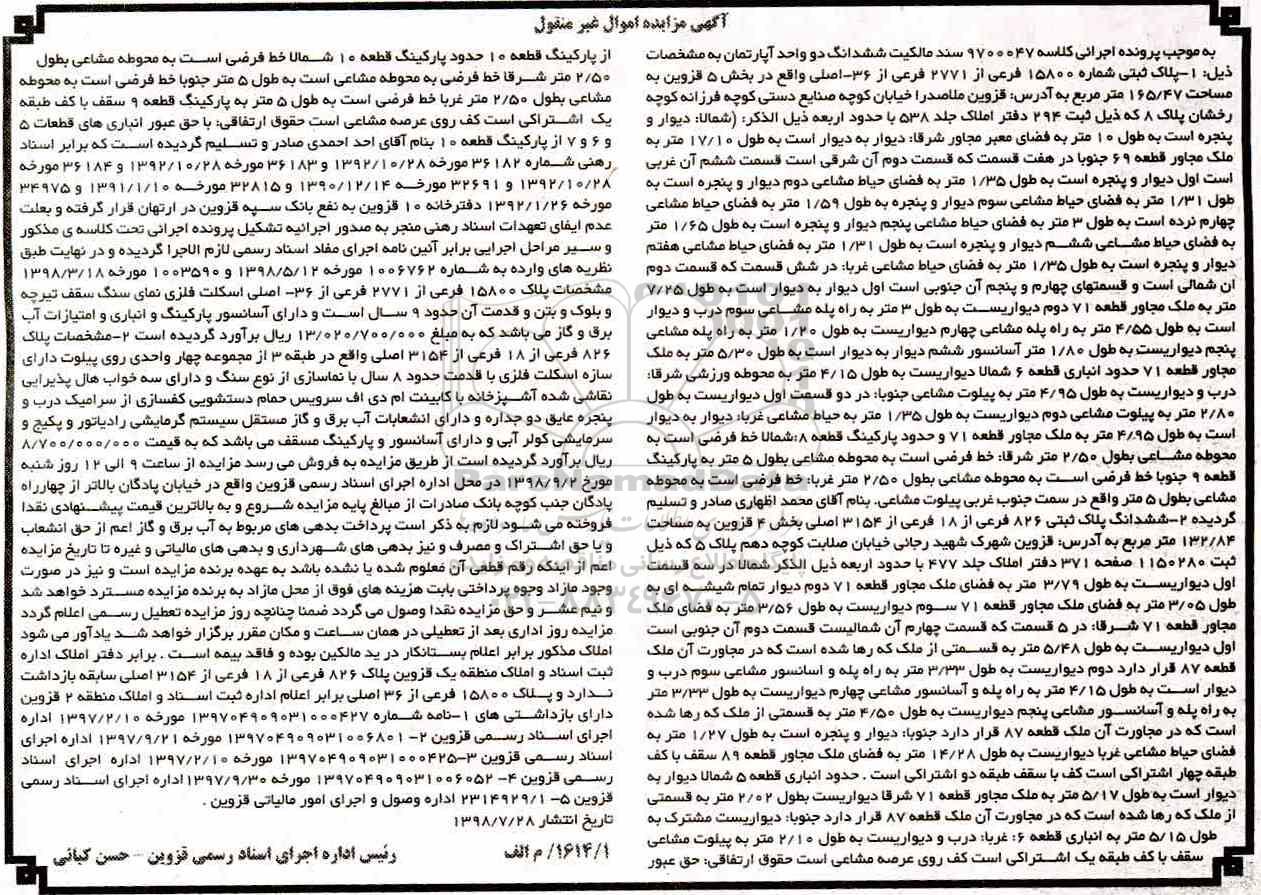 آگهی مزایده اموال غیر منقول
به موجب پرونده اجرائی کلاسه ۹۷۰۰۰۴۷ سند مالکیت ششدانگ دو واحد آپارتمان به مشخصات
ذیل: ۱-پلاک ثبتی شماره ۱۵۸۰۰ فرعی از ۲۷۷۱ فرعی از ۳۶-اصلی واقع در بخش ۵ قزوین به
مساحت ۱۶۵/۴۷ متر مربع به آدرس: قزوین ملاصدرا خیابان کوچه صنایع دستی کوچه فرزانه کوچه
رخشان پلاک ۸ که ذیل ثبت ۲۹۴ دفتر املاک جلد ۵۳۸ با حدود اربعه ذیل الذکر: (شمالا: دیوار و
پنجره است به طول ۱۰ متر به فضای معبر مجاور شرقا: دیوار به دیوار است به طول ۱۷/۱۰ متر به
ملک مجاور قطعه ۶۹ جنوبا در هفت قسمت که قسمت دوم آن شرقی است قسمت ششم آن غربی
است اول دیوار و پنجره است به طول ۱/۳۵ متر به فضای حیاط مشاعی دوم دیوار و پنجره است به
طول ۱/۳۱ متر به فضای حیاط مشاعی سوم دیوار و پنجره به طول ۱/۵۹ متر به فضای حیاط مشاعی
چهارم نرده است به طول ۳ متر به فضای حیاط مشاعی پنجم دیوار و پنجره است به طول ۱/۶۵ متر
به فضای حیاط مشاعی ششم دیوار و پنجره است به طول ۱/۳۱ متر به فضای حیاط مشاعی هفتم
دیوار و پنجره است به طول ۱/۳۵ متر به فضای حیاط مشاعی غربا: در شش قسمت که قسمت دوم
ان شمالی است و قسمتهای چهارم و پنجم آن جنوبی است اول دیوار به دیوار است به طول ۷/۲۵
متر به ملک مجاور قطعه ۷۱ دوم دیواریست به طول ۳ متر به راه پله مشاعی سوم درب و دیوار
است به طول ۴/۵۵ متر به راه پله مشاعی چهارم دیواریست به طول ۱/۲۰ متر به راه پله مشاعی
پنجم دیواریست به طول ۱/۸۰ متر آسانسور ششم دیوار به دیوار است به طول ۵/۳۰ متر به ملک
مجاور قطعه ۷۱ حدود انباری قطعه ۶ شمالا دیواریست به طول ۴/۱۵ متر به محوطه ورزشی شرقا:
درب و دیواریست به طول ۴/۹۵ متر به پیلوت مشاعی جنوبا: در دو قسمت اول دیواریست به طول
۲/۸۰ متر به پیلوت مشاعی دوم دیواریست به طول ۱/۳۵ متر به حیاط مشاعی غربا: دیوار به دیوار
است به طول ۴/۹۵ متر به ملک مجاور قطعه ۷۱ و حدود پارکینگ قطعه ۸:شمالا خط فرضی است به
محوطه مشاعی بطول ۲/۵۰ متر شرقا: خط فرضی است به محوطه مشاعی بطول ۵ متر به پارکینگ
قطعه ۹ جنوبا خط فرضی است به محوطه مشاعی بطول ۲/۵۰ متر غربا: خط فرضی است به محوطه
مشاعی بطول ۵ متر واقع در سمت جنوب غربی پیلوت مشاعی. بنام آقای محمد اظهاری صادر و تسلیم
گردیده ۲-ششدانگ پلاک ثبتی ۸۲۶ فرعی از ۱۸ فرعی از ۳۱۵۴ اصلی بخش ۴ قزوین به مساحت
۱۳۲/۸۴ متر مربع به آدرس: قزوین شهرک شهید رجائی خیابان صلابت کوچه دهم پلاک ۵ که ذیل
ثبت ۱۱۵۰۲۸۰ صفحه ۳۷۱ دفتر املاک جلد ۴۷۷ با حدود اربعه ذیل الذکر شمالا در سه قسمت
اول دیواریست به طول ۳/۷۹ متر به فضای ملک مجاور قطعه ۷۱ دوم دیوار تمام شیشه ای به
طول ۳/۰۵ متر به فضای ملک مجاور قطعه ۷۱ سوم دیواریست به طول ۳/۵۶ متر به فضای ملک
مجاور قطعه ۷۱ شرقا: در ۵ قسمت که قسمت چهارم آن شمالیست قسمت دوم آن جنوبی است
اول دیواریست به طول ۵/۴۸ متر به قسمتی از ملک که رها شده است که در مجاورت آن ملک
قطعه ۸۷ قرار دارد دوم دیواریست به طول ۳/۳۳ متر به راه پله و اسانسور مشاعی سوم درب و
دیوار است به طول ۴/۱۵ متر به راه پله و آسانسور مشاعی چهارم دیواریست به طول ۳/۳۳ متر
به راه پله و آسانسور مشاعی پنجم دیواریست به طول ۴/۵۰ متر به قسمتی از ملک که رها شده
است که در مجاورت آن ملک قطعه ۸۷ قرار دارد جنوبا: دیوار و پنجره است به طول ۱/۲۷ متر به
فضای حیاط مشاعی غربا دیواریست به طول ۱۴/۲۸ متر به فضای ملک مجاور قطعه ۸۹ سقف با کف
طبقه چهار اشتراکی است کف با سقف طبقه دو اشتراکی است . حدود انباری قطعه ۵ شمالا دیوار به
دیوار است به طول ۵/۱۷ متر به ملک مجاور قطعه ۷۱ شرقا دیواریست بطول ۲/۰۲ متر به قسمتی
از ملک که رها شده است که در مجاورت آن ملک قطعه ۸۷ قرار دارد جنوبا: دیواریست مشترک به
طول ۵/۱۵ متر به انباری قطعه ۶: غربا: درب و دیواریست به طول ۲/۱۰ متر به پیلوت مشاعی
سقف با کف طبقه یک اشتراکی است کف روی عرصه مشاعی است حقوق ارتفاقی: حق عبور
از پارکینگ قطعه ۱۰ حدود پارکینگ قطعه ۱۰ شمالا خط فرضی است به محوطه مشاعی بطول
۲/۵۰ متر شرقا خط فرضی به محوطه مشاعی است به طول ۵ متر جنوبا خط فرضی است به محوطه
مشاعی بطول ۲/۵۰ متر غربا خط فرضی است به طول ۵ متر به پارکینگ قطعه ۹ سقف با کف طبقه
یک اشتراکی است کف روی عرصه مشاعی است حقوق ارتفاقی: با حق عبور انباری های قطعات ۵
و ۶ و ۷ از پارکینگ قطعه ۱۰ بنام آقای احد احمدی صادر و تسلیم گردیده است که برابر اسناد
رهنی شماره ۳۶۱۸۲ مورخه ۱۳۹۲/۱۰/۲۸ و ۳۶۱۸۳ مورخه ۱۳۹۲/۱۰/۲۸ و ۳۶۱۸۴ مورخه
۱۳۹۲/۱۰/۲۸ و ۳۲۶۹۱ مورخه ۱۳۹۰/۱۲/۱۴ و ۳۲۸۱۵ مورخه ۱۳۹۱/۱/۱۰ و ۳۴۹۷۵
مورخه ۱۳۹۲/۱/۲۶ دفترخانه ۱۰ قزوین به نفع بانک سپه قزوین در ارتهان قرار گرفته و بعلت
عدم ایفای تعهدات اسناد رهنی منجر به صدور اجرائیه تشکیل پرونده اجرائی تحت کلاسه ی مذکور
و سیر مراحل اجرایی برابر آئین نامه اجرای مفاد اسناد رسمی لازم الاجرا گردیده و در نهایت طبق
نظریه های وارده به شماره ۱۰۰۶۷۶۲ مورخه ۱۳۹۸/۵/۱۲ و ۱۰۰۳۵۹۰ مورخه ۱۳۹۸/۳/۱۸
مشخصات پلاک ۱۵۸۰۰ فرعی از ۲۷۷۱ فرعی از ۳۶- اصلی اسکلت فلزی نمای سنگ سقف تیرچه
و بلوک و بتن و قدمت آن حدود ۹ سال است و دارای آسانسور پارکینگ و انباری و امتیازات آب
برق و گاز می باشد که به مبلغ ۱۳/۰۲۰/۷۰۰/۰۰۰ ریال برآورد گردیده است ۲-مشخصات پلاک
۸۲۶ فرعی از ۱۸ فرعی از ۳۱۵۴ اصلی واقع در طبقه ۳ از مجموعه چهار واحدی روی پیلوت دارای
سازه اسکلت فلزی با قدمت حدود ۸ سال با نماسازی از نوع سنگ و دارای سه خواب هال پذیرایی
نقاشی شده آشپزخانه با کابینت ام دی اف سرویس حمام دستشویی کفسازی از سرامیک درب و
پنجره عایق دو جداره و دارای انشعابات آب برق و گاز مستقل سیستم گرمایشی رادیاتور و پکیج و
سرمایشی کولر آبی و دارای آسانسور و پارکینگ مسقف می باشد که به قیمت ۸/۷۰۰/۰۰۰/۰۰۰
ریال برآورد گردیده است از طریق مزایده به فروش می رسد مزایده از ساعت ۹ الی ۱۲ روز شنبه
مورخ ۱۳۹۸/۹/۲ در محل اداره اجرای اسناد رسمی قزوین واقع در خیابان پادگان بالاتر از چهارراه
پادگان جنب کوچه بانک صادرات از مبالغ پایه مزایده شروع و به بالاترین قیمت پیشنهادی نقدا
فروخته می شود لازم به ذکر است پرداخت بدهی های مربوط به آب برق و گاز اعم از حق انشعاب
و یا حق اشتراک و مصرف و نیز بدهی های شهرداری و بدهی های مالیاتی و غیره تا تاریخ مزایده
اعم از اینکه رقم قطعی آن معلوم شده یا نشده باشد به عهده برنده مزایده است و نیز در صورت
وجود مازاد وجوه پرداختی بابت هزینه های فوق از محل مازاد به برنده مزایده مسترد خواهد شد
و نیم عشر و حق مزایده نقدا وصول می گردد ضمنا چنانچه روز مزایده تعطیل رسمی اعلام گردد
مزایده روز اداری بعد از تعطیلی در همان ساعت و مکان مقرر برگزار خواهد شد یادآور می شود
املاک مذکور برابر اعلام بستانکار در ید مالکین بوده و فاقد بیمه است . برابر دفتر املاک اداره
ثبت اسناد و املاک منطقه یک قزوین پلاک ۸۲۶ فرعی از ۱۸ فرعی از ۳۱۵۴ اصلی سابقه بازداشت
ندارد و پلاک ۱۵۸۰۰ فرعی از ۳۶ اصلی برابر اعلام اداره ثبت اسناد و املاک منطقه ۲ قزوین
دارای بازداشتی های ۱-نامه شماره ۱۳۹۷۰۴۹۰۹۰۳۱۰۰۰۴۲۷ مورخه ۱۳۹۷/۲/۱۰ اداره
اجرای اسناد رسمی قزوین ۲- ۱۳۹۷۰۴۹۰۹۰۳۱۰۰۶۸۰۱ مورخه ۱۳۹۷/۹/۲۱ اداره اجرای
اسناد رسمی قزوین ۳-۱۳۹۷۰۴۹۰۹۰۳۱۰۰۰۴۲۵ مورخه ۱۳۹۷/۲/۱۰ اداره اجرای اسناد
رسمی قزوین ۴- ۱۳۹۷۰۴۹۰۹۰۳۱۰۰۶۰۵۲ مورخه ۱۳۹۷/۹/۳۰ اداره اجرای اسناد رسمی
قزوین ۵- ۲۳۱۴۹۲۹/۱ اداره وصول و اجرای امور مالیاتی قزوین .
تاریخ انتشار ۱۳۹۸/۷/۲۸
۱۶۱۴/۱/ م الف
رئیس اداره اجرای اسناد رسمی قزوین - حسن کیائی